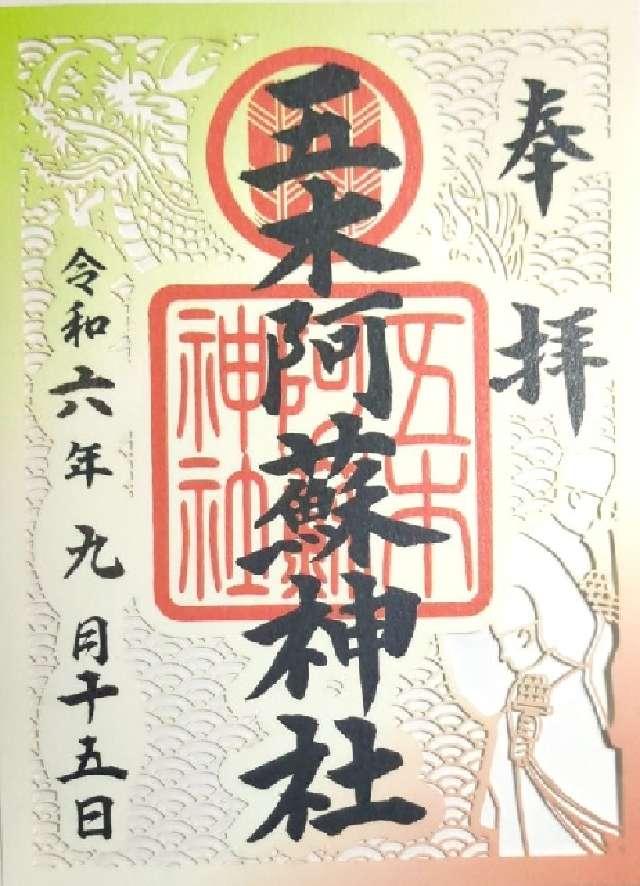 奉拝
五木阿蘇神社
五木阿蘇神社
令和六年九月十五日